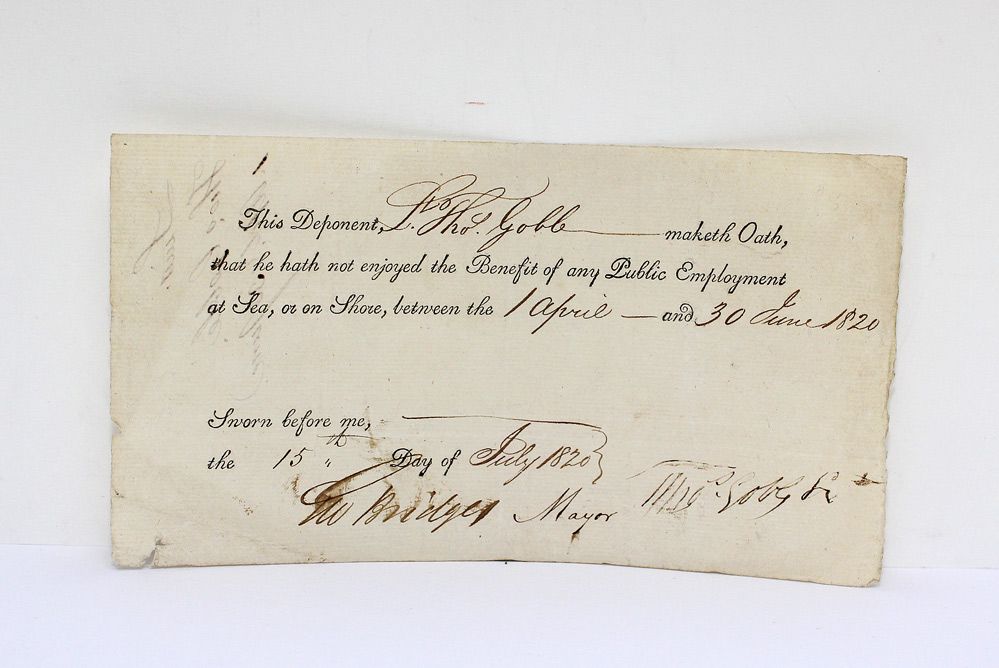 This Deponent, Lt. Thos. Gobb maketh Oath,
that he hath not enjoyed the Benefit of any Public Employment
at Sea, or on Shore, between the 1 April and 30 June 1820
Sworn before me,
the 15th Day of July 1820
Geo Bridges Mayor Thos.